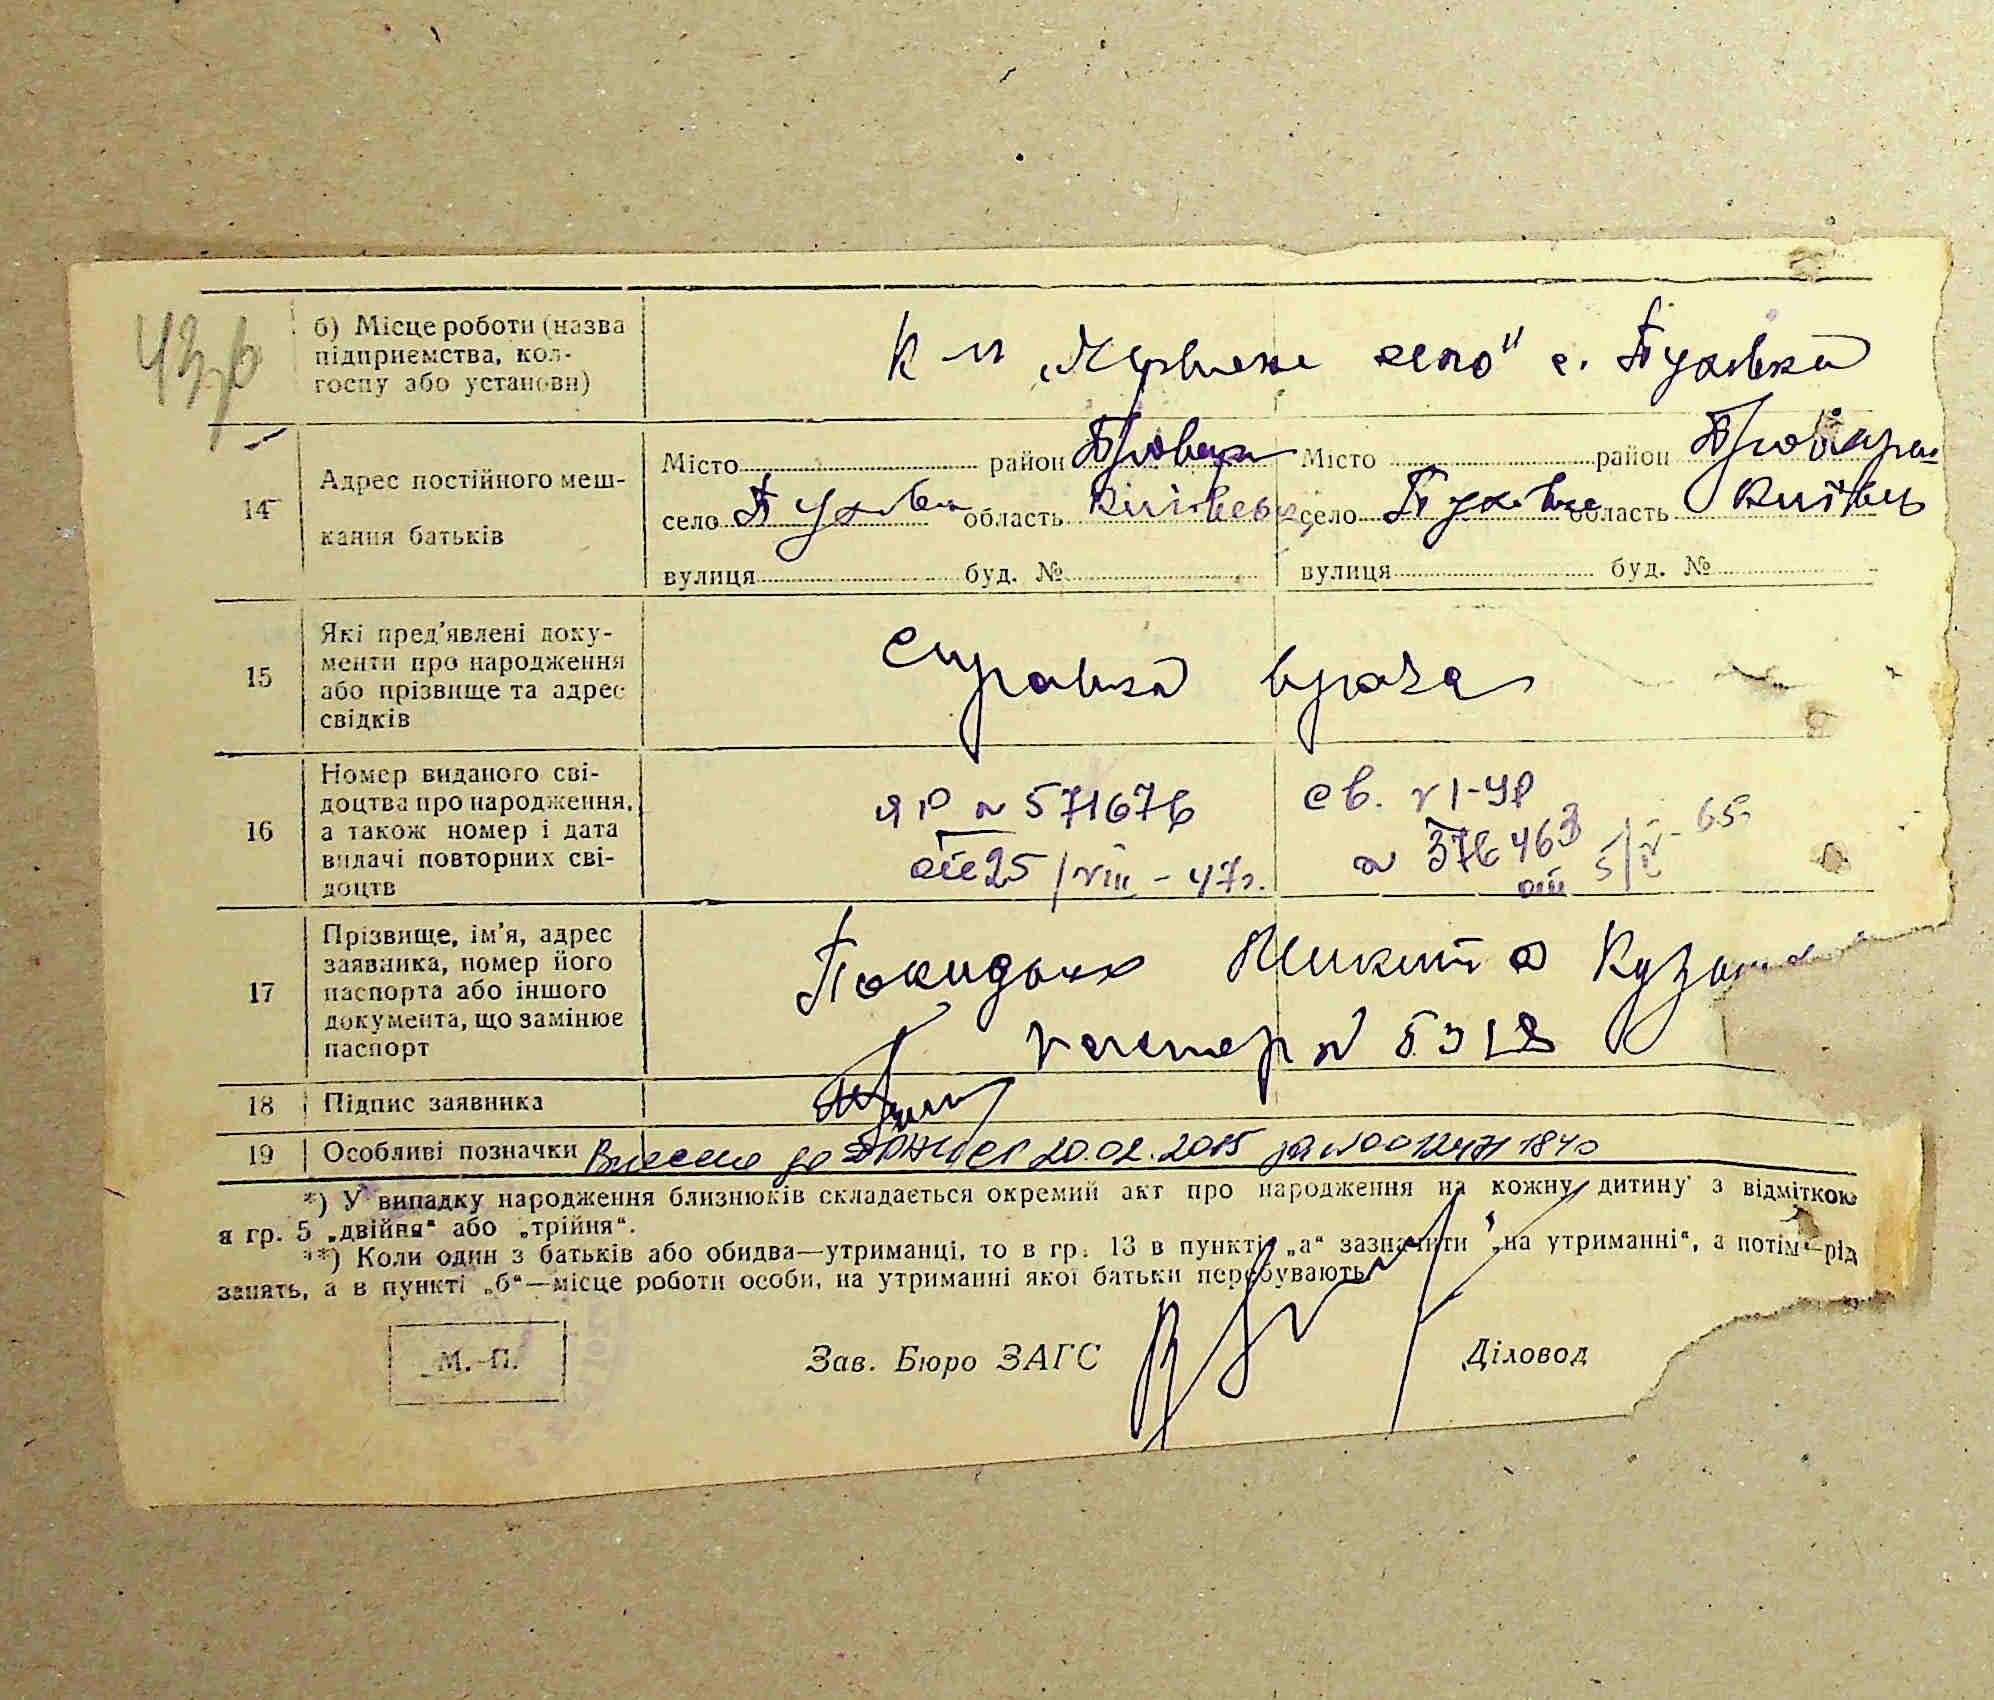 43б
б) Місце роботи (назва
підприємства, кол-
госпу або установи)
К-п „Червоне село" с. Пухівка
14
Адрес постійного меш-
кання батьків
Місто район Бровар Місто район Броварс
село Пухівка область Київськ село Пухівка область Київсь
вулиця буд. № вулиця буд. №
15
Які пред'явлені доку-
менти про народження
або прізвище та адрес
свідків
Справка врача
16
Номер виданого сві-
доцтва про народження,
а також номер і дата
видачі повторних сві-
доцтв
ЯР № 571676
от 25/VIII-47г.
св. VI-УР
№ 376463
от 5/V-65
17
Прізвище, ім'я, адрес
заявника, номер його
паспорта або іншого
документа, що замінює
паспорт
Никита
паспорт № 5312
18 Підпис заявника
19 Особливі позначки Внесено до ДРАЦСГ 20.02.2015 за № 00124711840
*) У випадку народження близнюків складається окремий акт про народження на кожну дитину з відміткою
в гр. 5 „двійня“ або „трійня“.
**) Коли один з батьків або обидва—утриманці, то в гр. 13 в пункті „а“ зазначити „на утриманні“, а потім—рід
занять, а в пункті „б“—місце роботи особи, на утриманні якої батьки перебувають.
М.-П.
Зав. Бюро ЗАГС
Діловод